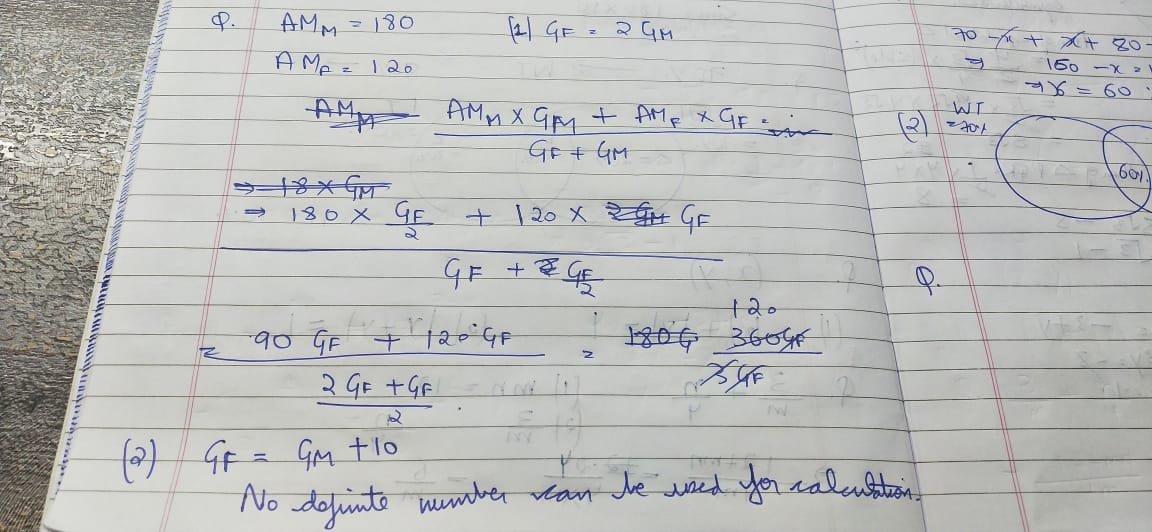 Q. AM_M = 180 (1) GF = 2 GM
AM_F = 120
AM_M
AM_M × GM + AM_F × GF =
GF + GM
⇒ 18 × GM
⇒ 180 × GF/2 + 120 × 2GM GF
GF + 2 GF/2
= 90 GF + 120 GF = 180G 360GF 120
2 GF + GF 3 GF
2
(2) GF = GM + 10
No definite number can be used for calculation.
70 - x + x + 80 -
⇒ 150 - x =
⇒ x = 60
(2) WT
= 70%
60%
Q.